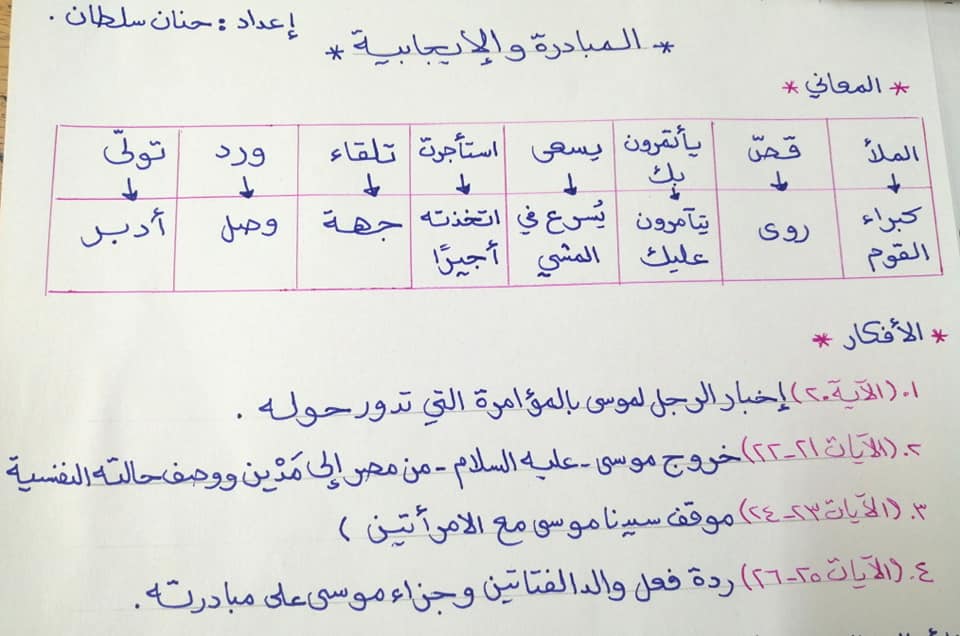 إعداد : حنان سلطان .
* المبادرة والإيجابية *
* المعاني *
الملأ قصّ يأتمرون بك يسعى استأجرت تلقاء ورد تولّى
↓ ↓ ↓ ↓ ↓ ↓ ↓ ↓
كبراء القوم روى يتآمرون عليك يُسرع في المشي اتخذته أجيرًا جهة وصل أدبر
* الأفكار *
١. (الآية ٢٠) إخبار الرجل لموسى بالمؤامرة التي تدور حوله .
٢. (الآيات ٢١-٢٢) خروج موسى - عليه السلام - من مصر إلى مَدْين ووصف حالته النفسية
٣. (الآيات ٢٣-٢٤) موقف سيدنا موسى مع الامرأتين )
٤. (الآيات ٢٥-٢٦) ردة فعل والد الفتاتين وجزاء موسى على مبادرته .